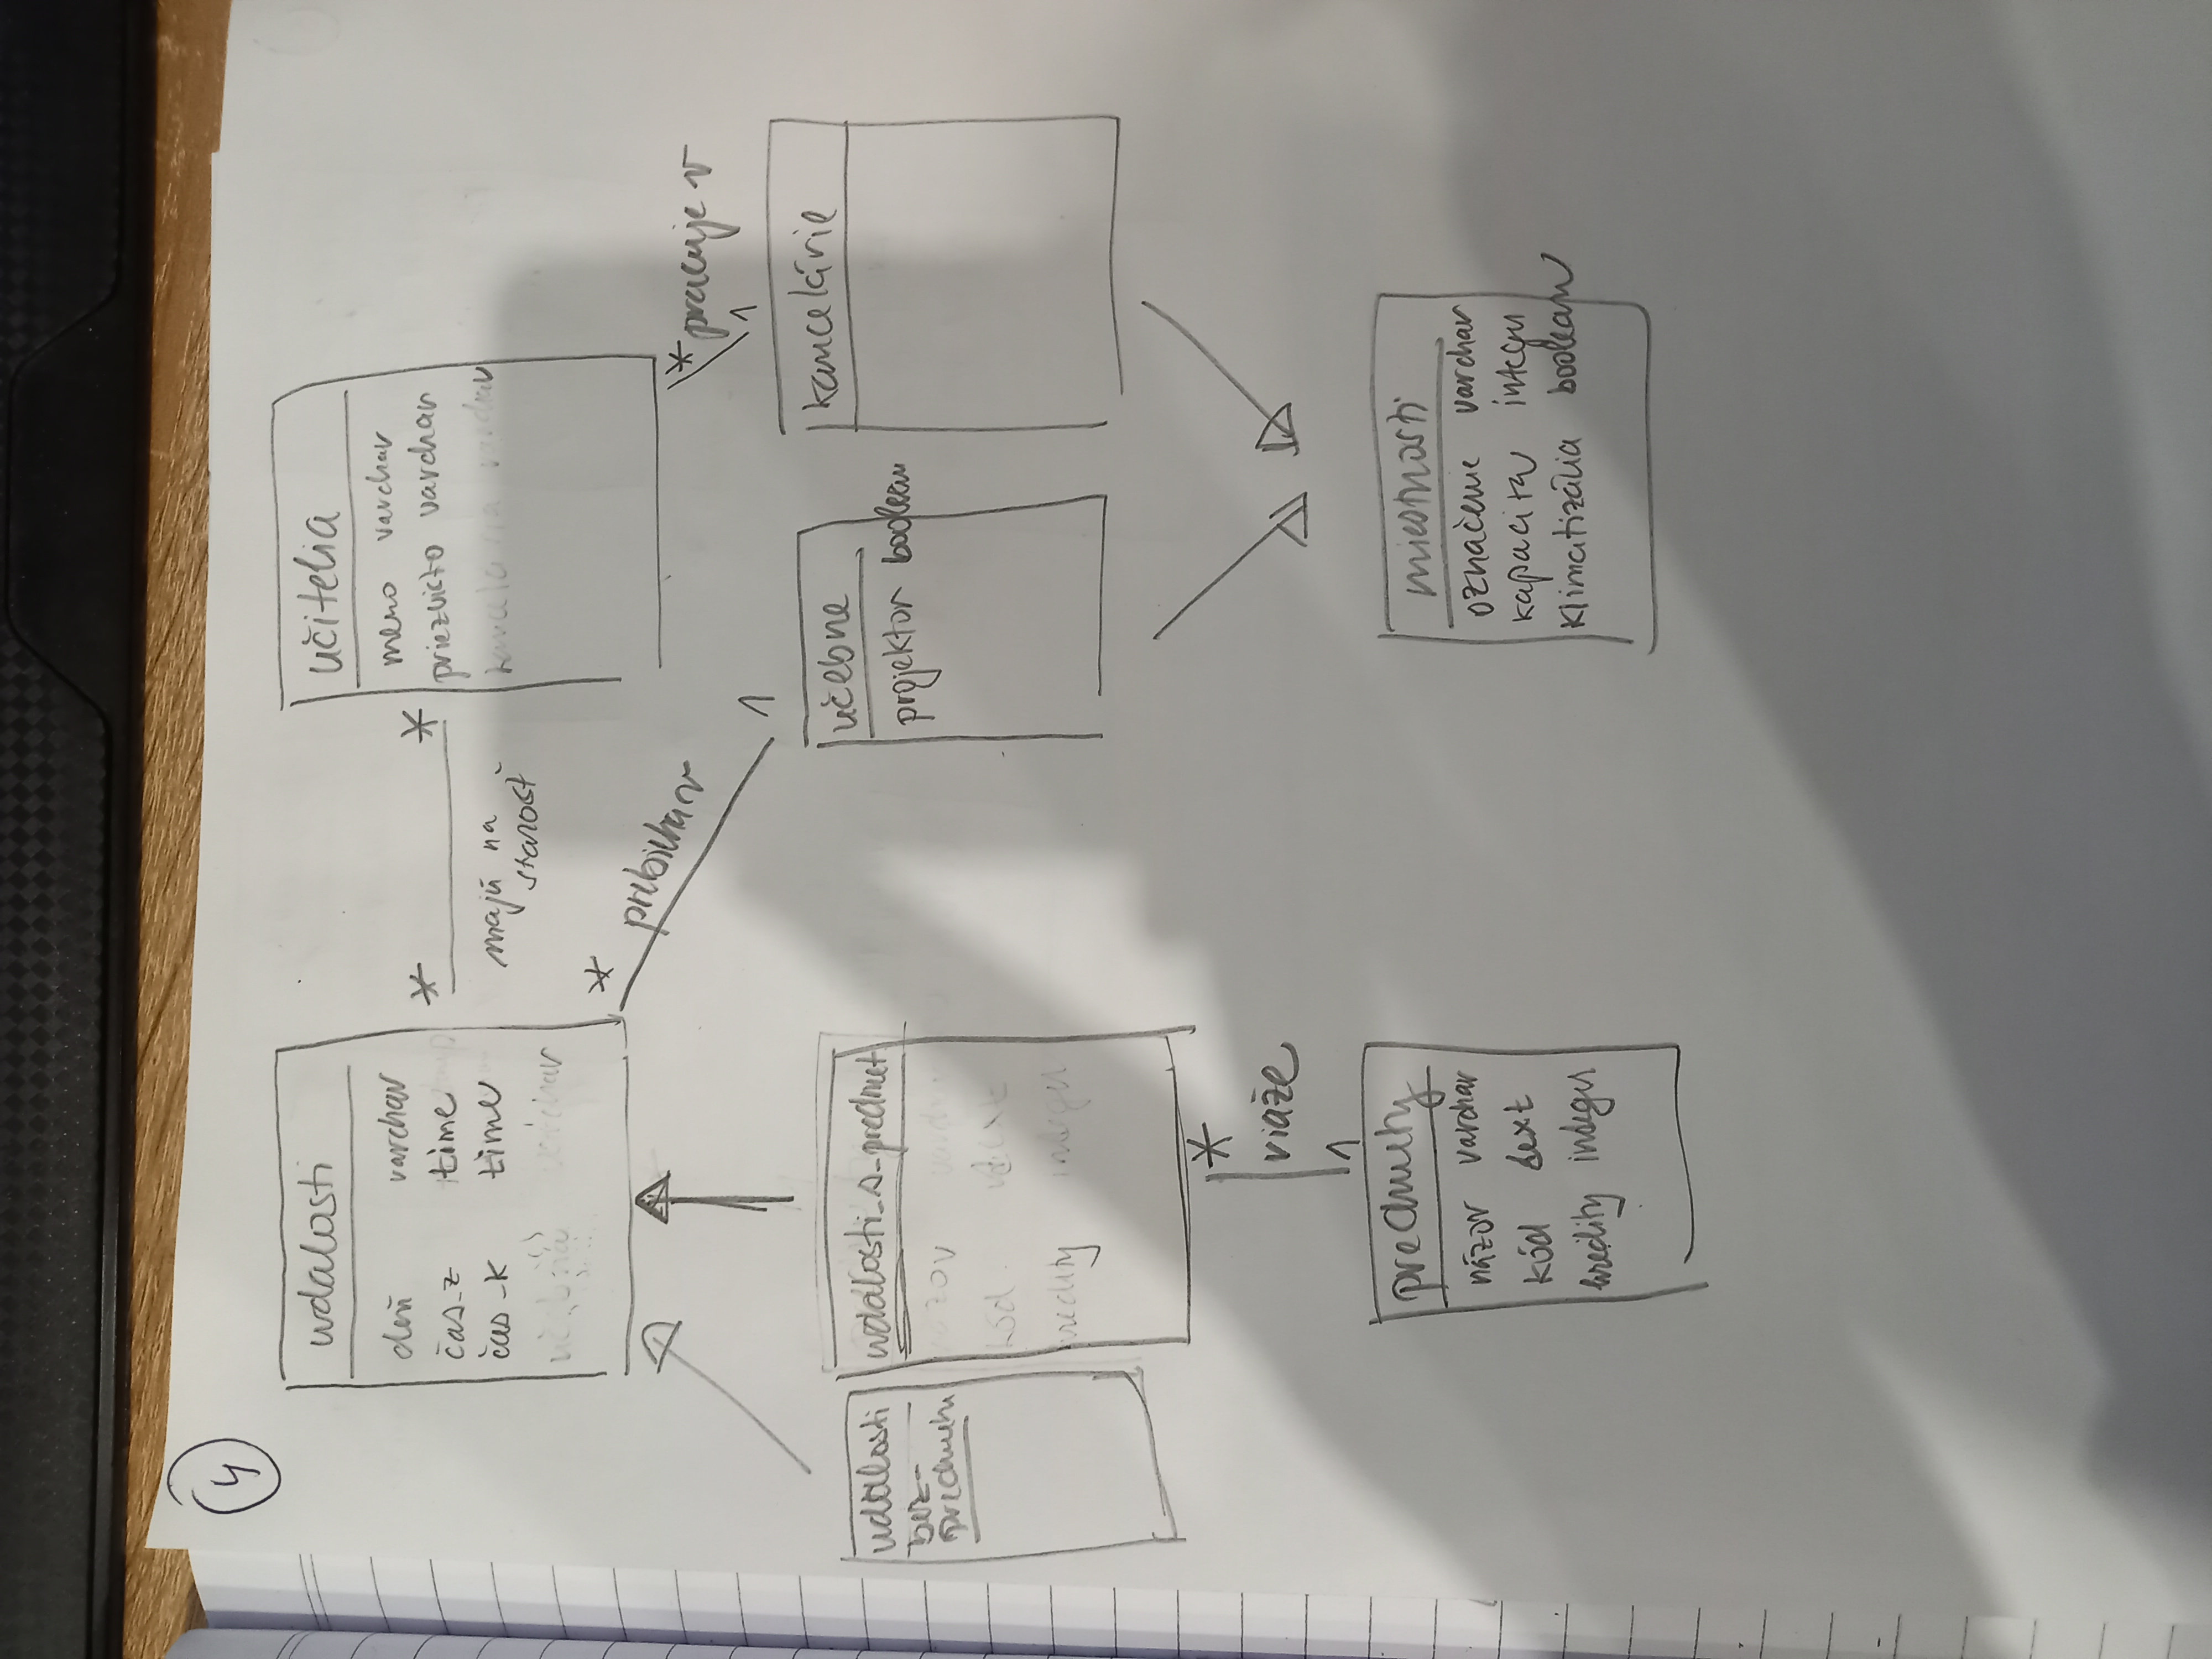 4
udalosti
deň varchar
čas_z time
čas_k time
učitelia
meno varchar
priezvisto varchar
kancelária varchar
*
*
majú na
starosť
*
prebieha v
1
* pracuje v
1
udalosti
bez-
predmetu
udalosti_s_predmet
názov
kód text
kredity integer
učebne
projektor boolean
kancelárie
*
viaže
1
predmety
názov varchar
kód text
kredity integer
miestnosti
označenie varchar
kapacita integer
klimatizália boolean